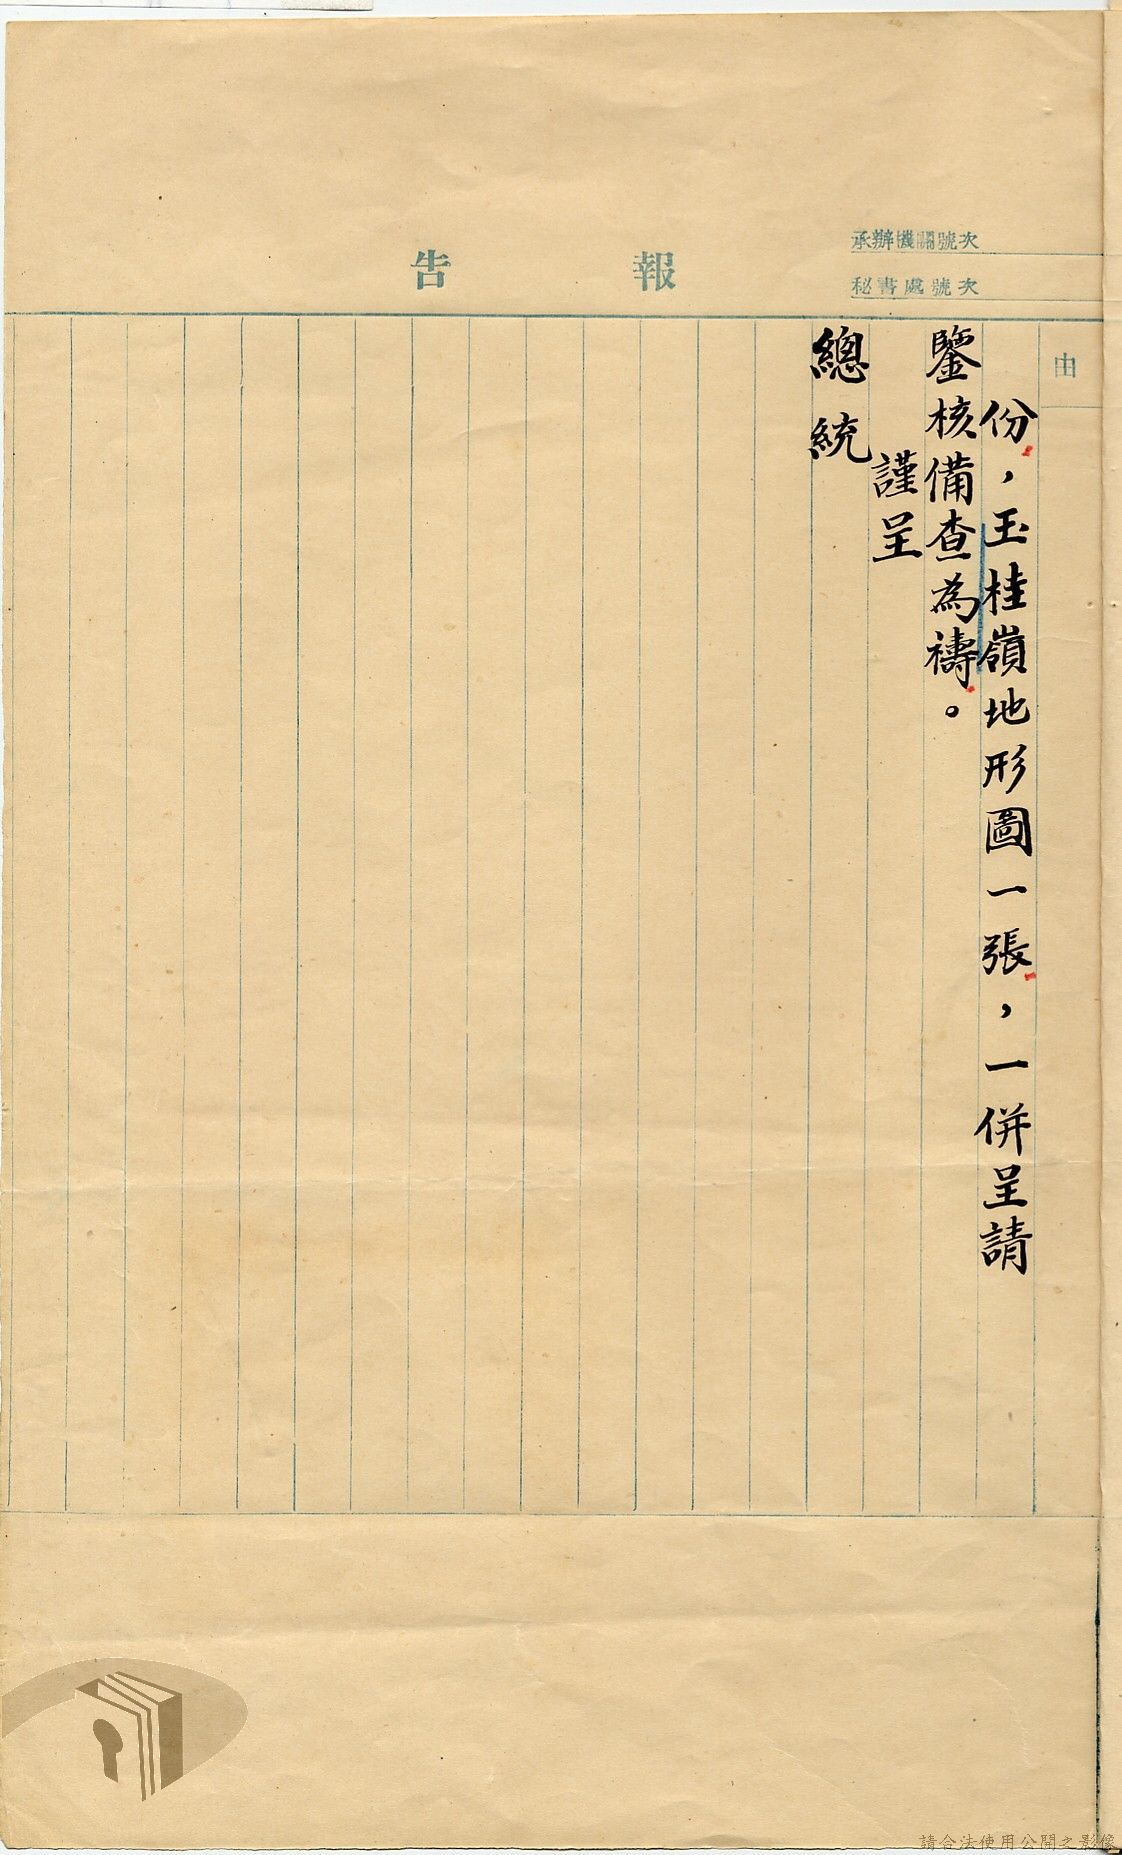 承辦機關號次
秘書處號次
報告
由
份，玉桂嶺地形圖一張，一併呈請
鑒核備查為禱。
謹呈
總統
請合法使用公開之影像